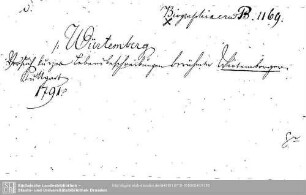 Biogr. erud. B. 1169.
Würtemberg
Versuch kurzer Lebensbeschreibungen berühmter Würtemberger.
Stuttgart
1791.
Sächsische Landesbibliothek -
Staats- und Universitätsbibliothek Dresden